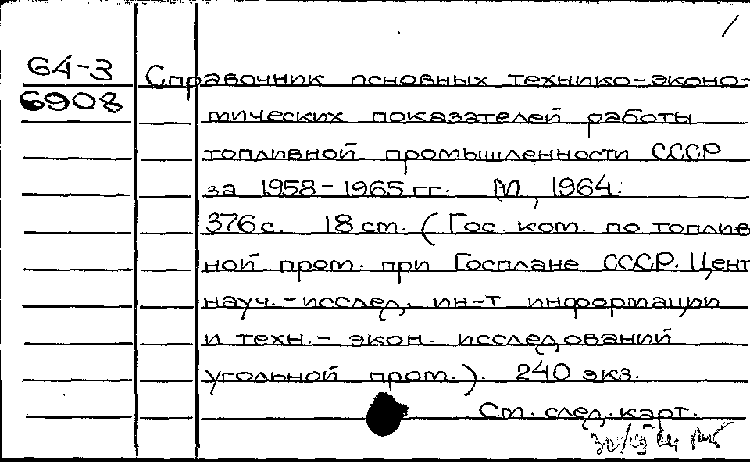 64-3
6908
Справочник основных технико-эконо-
мических показателей работы
топливной промышленности СССР
за 1958-1965 гг. М, 1964.
376 с. 18 см. (Гос. ком. по топлив
ной пром. при Госплане СССР. Цент
науч.-исслед. ин-т информации
и техн.-экон. исследований
угольной пром.). 240 экз.
См. след. карт.